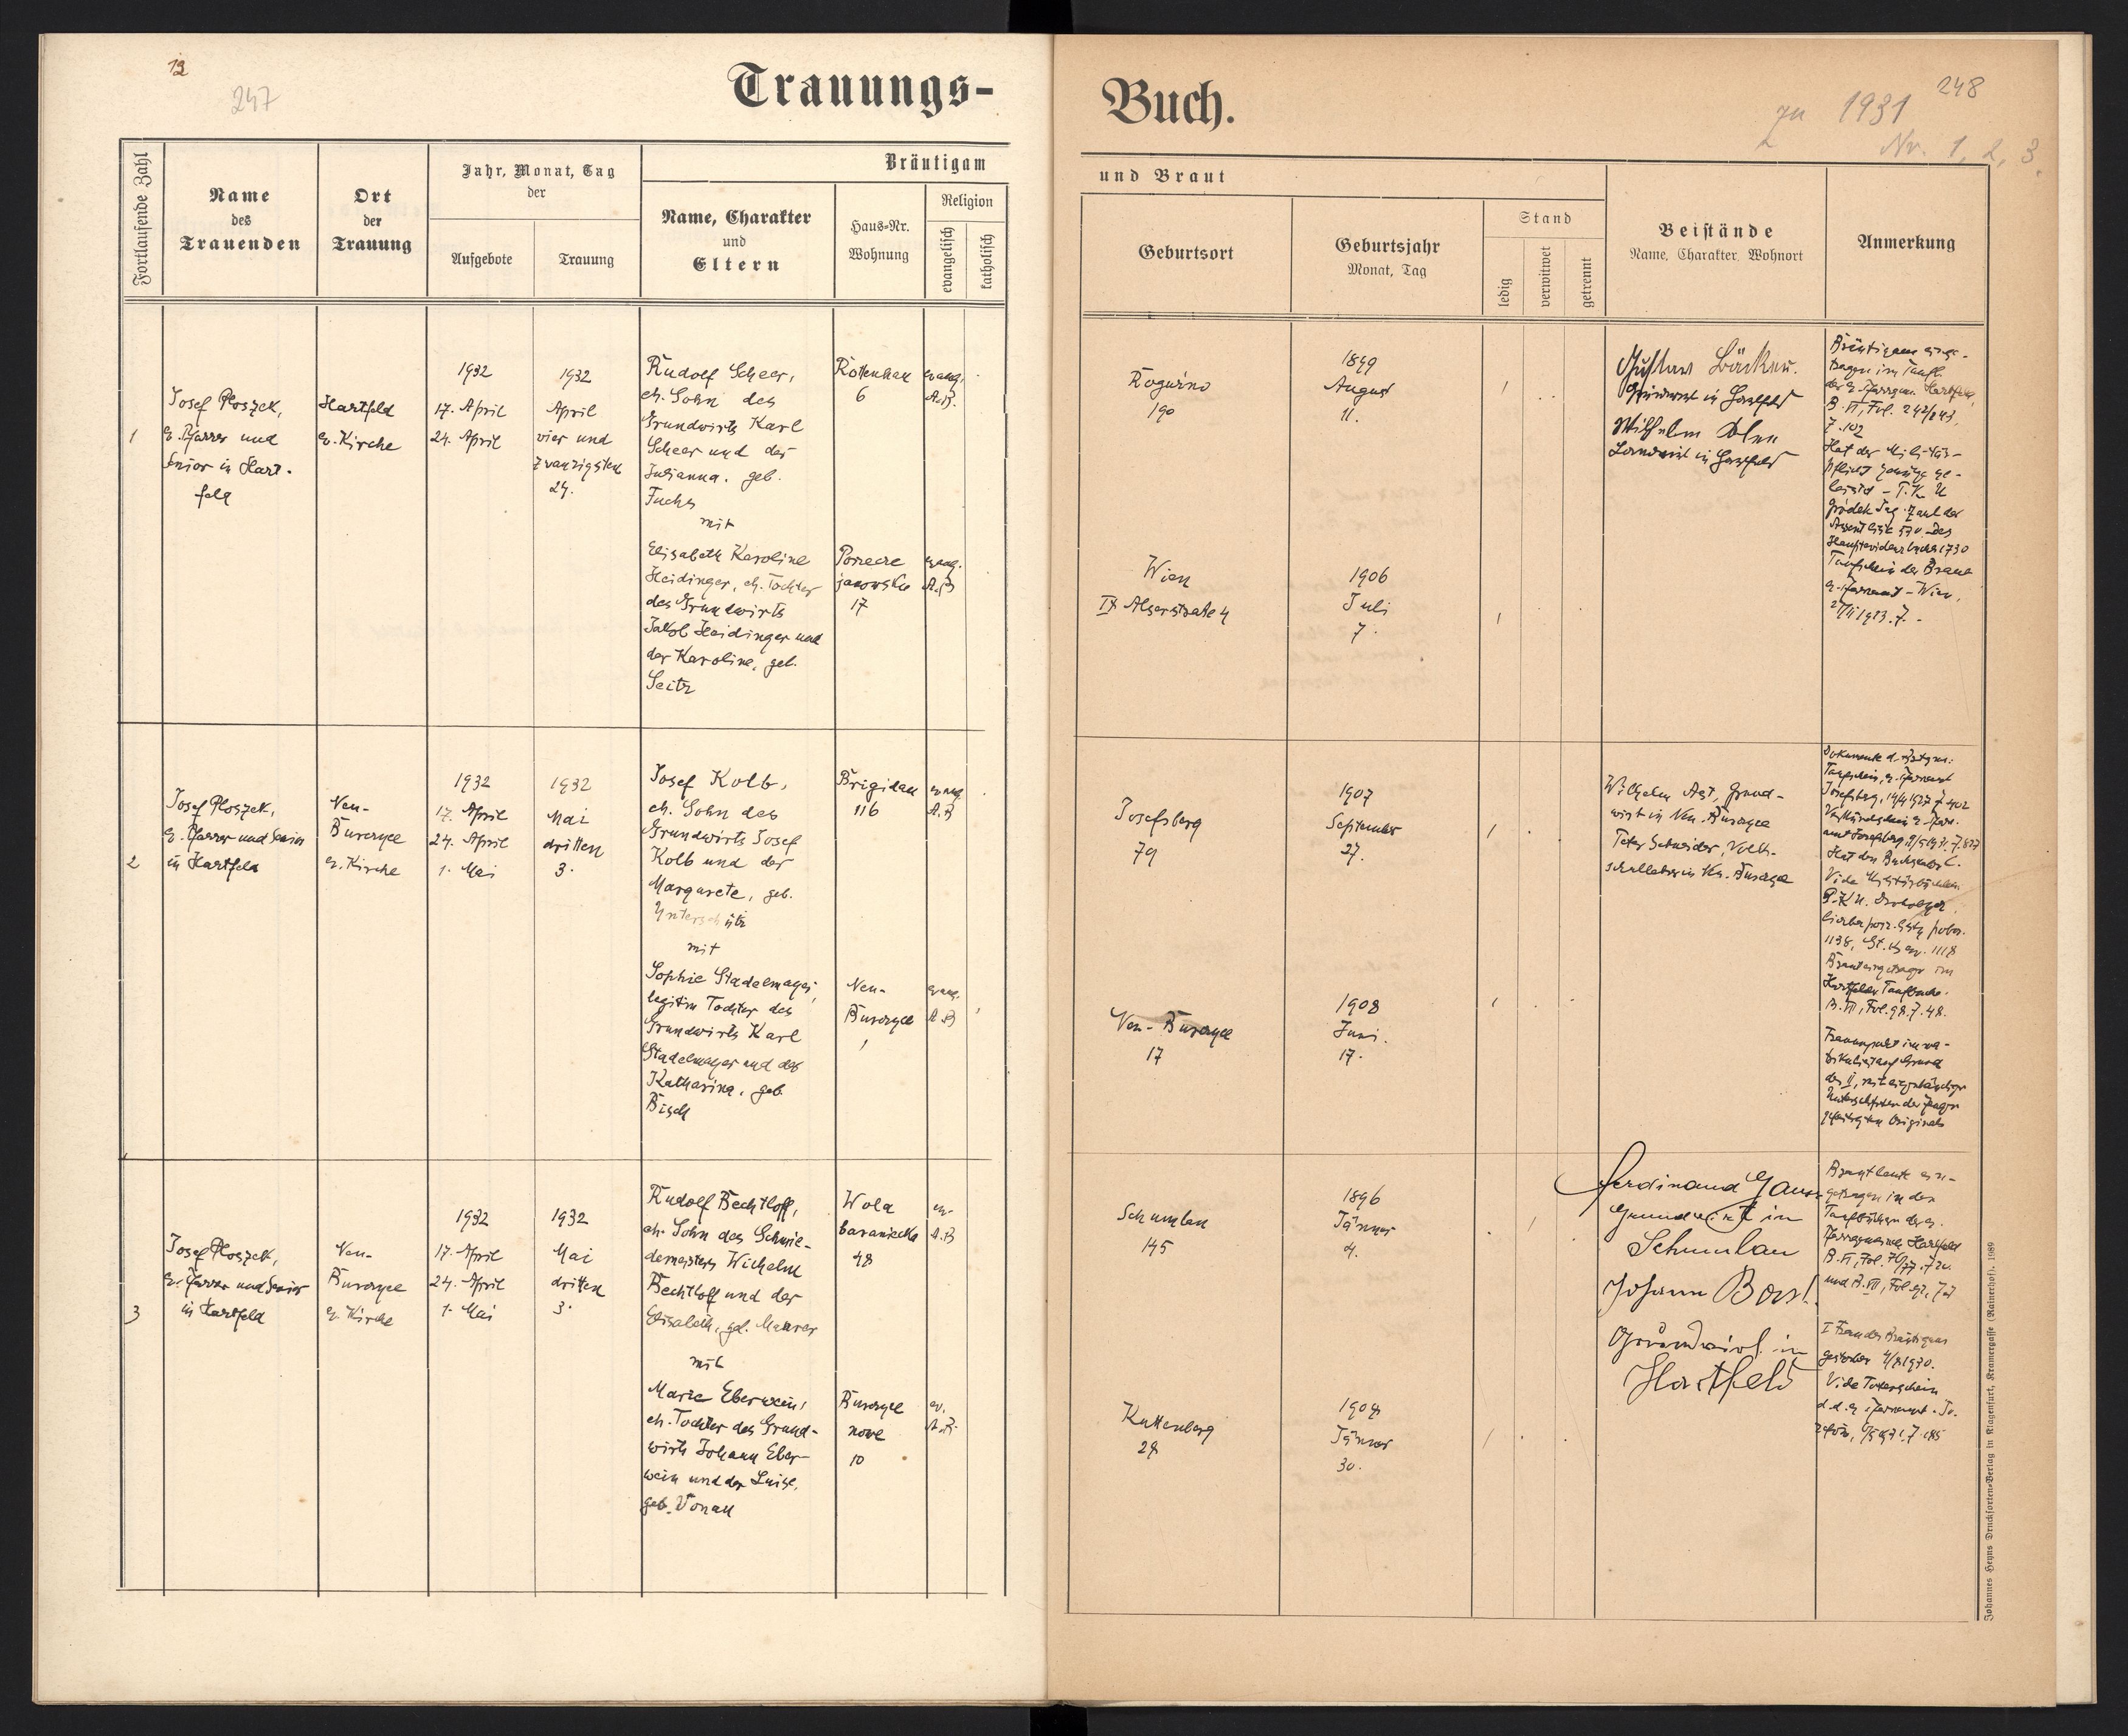 13
247
Trauungs-
Fortlaufende Zahl
Name
des
Trauenden
Ort
der
Trauung
Jahr, Monat, Tag
der
Aufgebote
Trauung
Bräutigam
Name, Charakter
und
Eltern
Haus-Nr.
Wohnung
Religion
evangelisch
katholisch
1
Josef Ploszek,
ev. Pfarrer und
Senior in Hart-
feld
Hartfeld
ev. Kirche
1932
17. April
24. April
1932
April
vier und
zwanzigsten
24.
Rudolf Scheer,
eh. Sohn des
Grundwirts Karl
Scheer und der
Julianna, geb.
Fuchs
mit
Elisabeth Karoline
Heidinger, eh. Tochter
des Grundwirts
Jakob Heidinger und
der Karoline, geb.
Seitz
Rottenhan
6
evang.
A.B.
Porzecze
janowskie
17
evang.
A.B
2
Josef Ploszek,
ev. Pfarrer und Senior
in Hartfeld
Neu-
Burczyce
ev. Kirche
1932
17. April
24. April
1. Mai
1932
Mai
dritten
3.
Josef Kolb,
eh. Sohn des
Grundwirts Josef
Kolb und der
Margarete, geb.
Unterschütz
mit
Sophie Stadelmayer,
legitim Tochter des
Grundwirts Karl
Stadelmayer und der
Katharina, geb.
Bisch
Brigidau
116
evang.
A.B
Neu-
Burczyce
1
evang.
A.B
3
Josef Ploszek,
ev. Pfarrer und Senior
in Hartfeld
Neu-
Burczyce
ev. Kirche
1932
17. April
24. April
1. Mai
1932
Mai
dritten
3.
Rudolf Bechtloff,
eh. Sohn des Schmie-
demeisters Wilhelm
Bechtloff und der
Elisabeth, geb. Maurer
mit
Marie Eberwein,
eh. Tochter des Grund-
wirts Johann Eber-
wein und der Luise,
geb. Vonau
Wola
baraniecka
48
ev.
A.B
Burczyce
nove
10
ev.
A.B.
Buch.
248
zu 1931
Nr. 1, 2, 3.
und Braut
Geburtsort
Geburtsjahr
Monat, Tag
Stand
ledig
verwitwet
getrennt
Beistände
Name, Charakter, Wohnort
Anmerkung
Rogużno
190
1899
August
11.
Gustav
Grundwirt in Hartfeld
Wilhelm
Landwirt in Hartfeld
Bräutigam einge-
tragen im Taufb.
der ev. Pfarrgem. Hartfeld,
B. VI, Fol. 242/243,
Z. 102
Hat der Militär-
pflicht Genüge ge-
leistet - P.K.U
Gródek Jag. Zahl der
des
Hauptevidenzbuchs 1730
Taufschein der Braut
ev. Pfarramt - Wien,
Wien
IX Alserstraße 4
1906
Juli
7.
Josefsberg
79
1907
September
27.
Wilhelm Ast, Grund-
wirt in Neu-Burczyce
Peter Schneider, Volks-
schullehrer in Neu-Burczyce
Dokumente d. Bräutigams:
Taufschein, ev. Pfarramt
Josefsberg, 14/4 1927 Z 402
Verkündschein ev. Pfarr-
amt Josefsberg
P.K.U. Drohobycz
1138,
Braut eingetragen im
Hartfelder Taufbuche.
B. VII, Fol. 98. Z. 48.
Neu-Burczyce
17
1908
Juni.
17.
des II, mit eigenhändigen
Unterschriften der Zeugen
Originals
Schumlau
145
1896
Jänner
4.
Ferdinand Gauss
Grundwirt in
Schumlau
Johann Bast
Grundwirt in
Hartfeld
Brautleute ein-
getragen in den
Taufbüchern der ev.
Pfarrgemeinde Hartfeld
B. VI, Fol. 76/77, Z 20.
und B. VII, Fol. 92, Z 7
I Frau des Bräutigams
gestorben 4/8 1930.
Vide Totenschein
d. d. ev. Pfarramt
Kuttenberg
28
1908
Jänner
30.
Johannes Heyns Drucksorten-Verlag in Klagenfurt, Kramergasse (Rainerhof). 1989